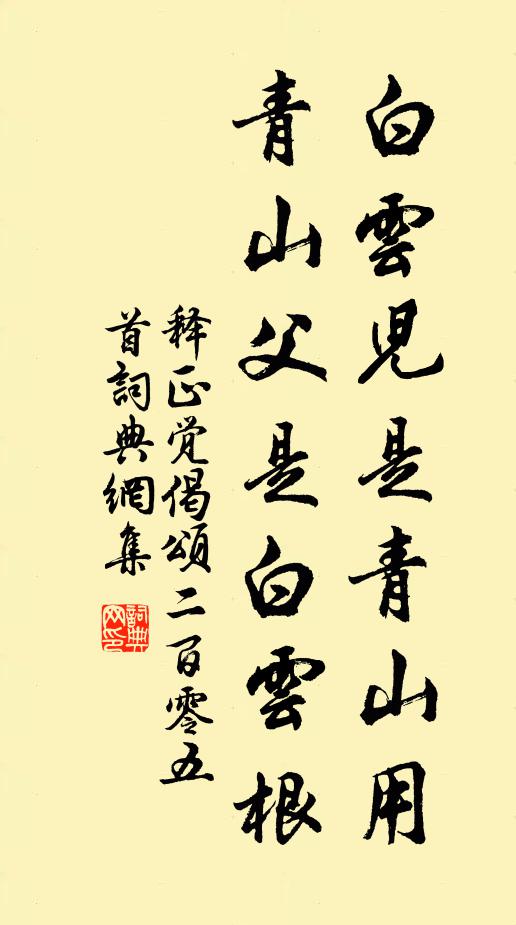 白雲児是青山用
青山父是白雲根
释正觉偈頌二百零五
首詞典網集
詞典
网印